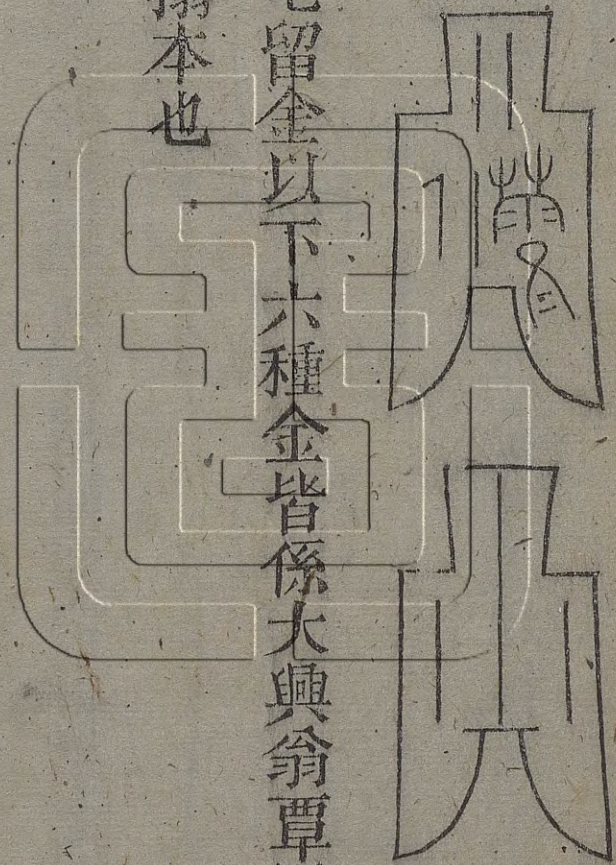 留金以下六種金皆係大興翁覃
搨本也